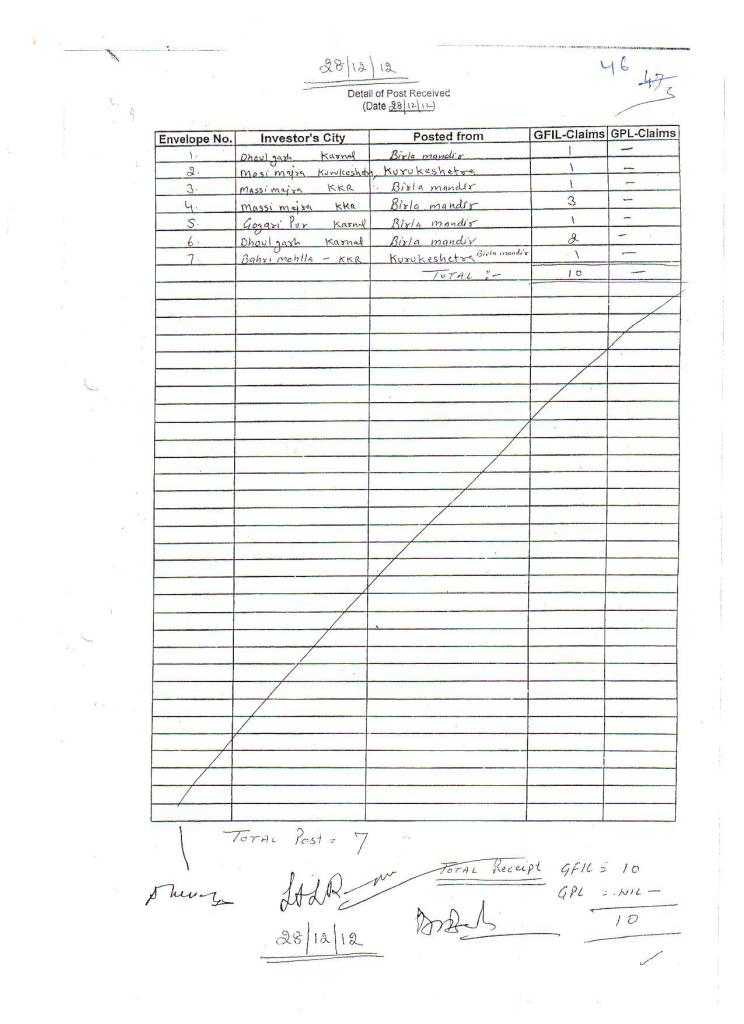 28/12/12
46
47
Detail of Post Received
(Date 28/12/12)
Envelope No. Investor's City Posted from GFIL-Claims GPL-Claims
1. Dhoulgarh Karnal Birla mandir 1 —
2. Masi majra Kurukeshetra Kurukeshetra 1 —
3. Massi majra KKR Birla mandir 1 —
4. Massi majra KKR Birla mandir 3 —
5. Gogari Pur Karnal Birla mandir 1 —
6. Dhoulgarh Karnal Birla mandir 2 —
7. Bahri mohlla - KKR Kurukeshetra Birla mandir 1 —
TOTAL :- 10 —
TOTAL Post = 7
TOTAL Receipt GFIL = 10
GPL = NIL —
10
28/12/12